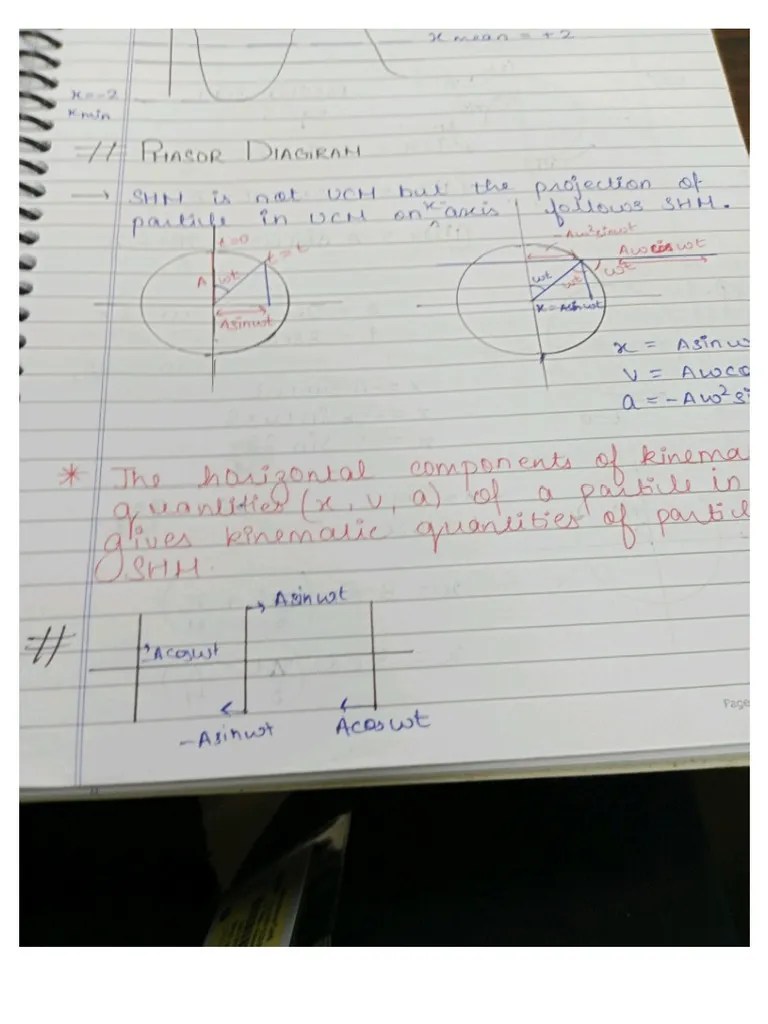 x mean = +2
x = -2
x min
// PHASOR DIAGRAM
→ SHM is not UCM but the projection of
particle in UCM on x axis follows SHM.
t=0
t=t
A
ωt
Asinωt
Aω²sinωt
Aωcosωt
ωt
ωt
ωt
x=Asinωt
x = Asinω
v = Aωco
a = -Aω²si
* The horizontal components of kinema
quantities (x, v, a) of a particle in
gives kinematic quantities of particle
SHM.
//
Asinωt
Acosωt
-Asinωt
Acosωt
Page